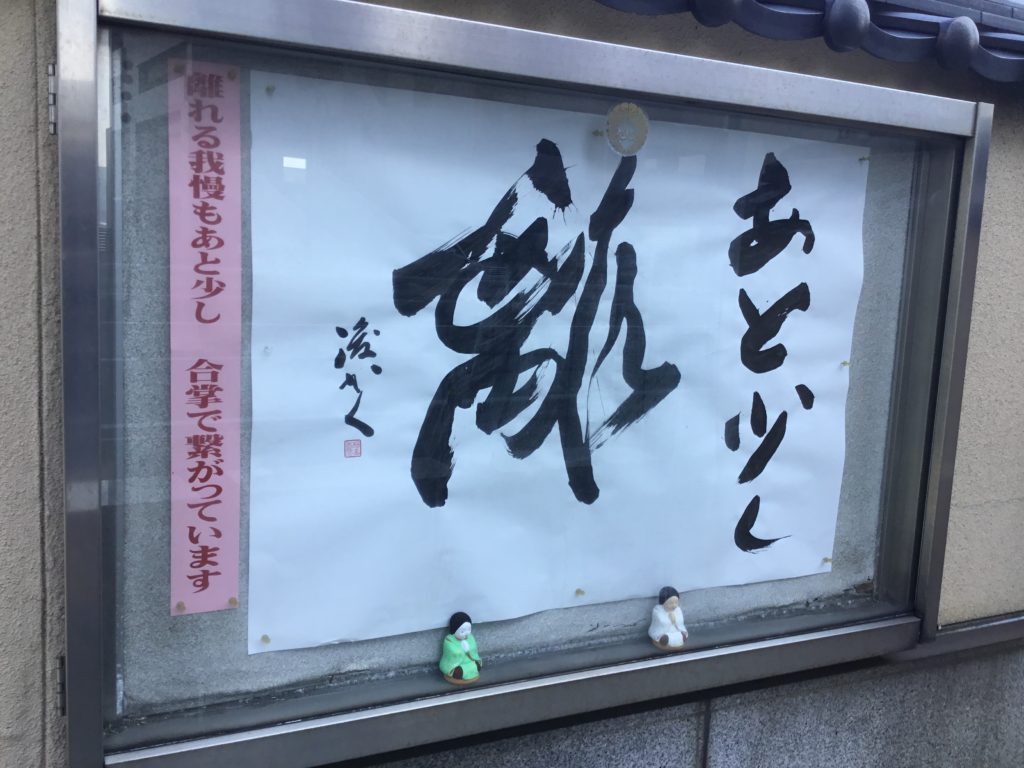 あと少し
離
離れる我慢もあと少し 合掌で繋がっています